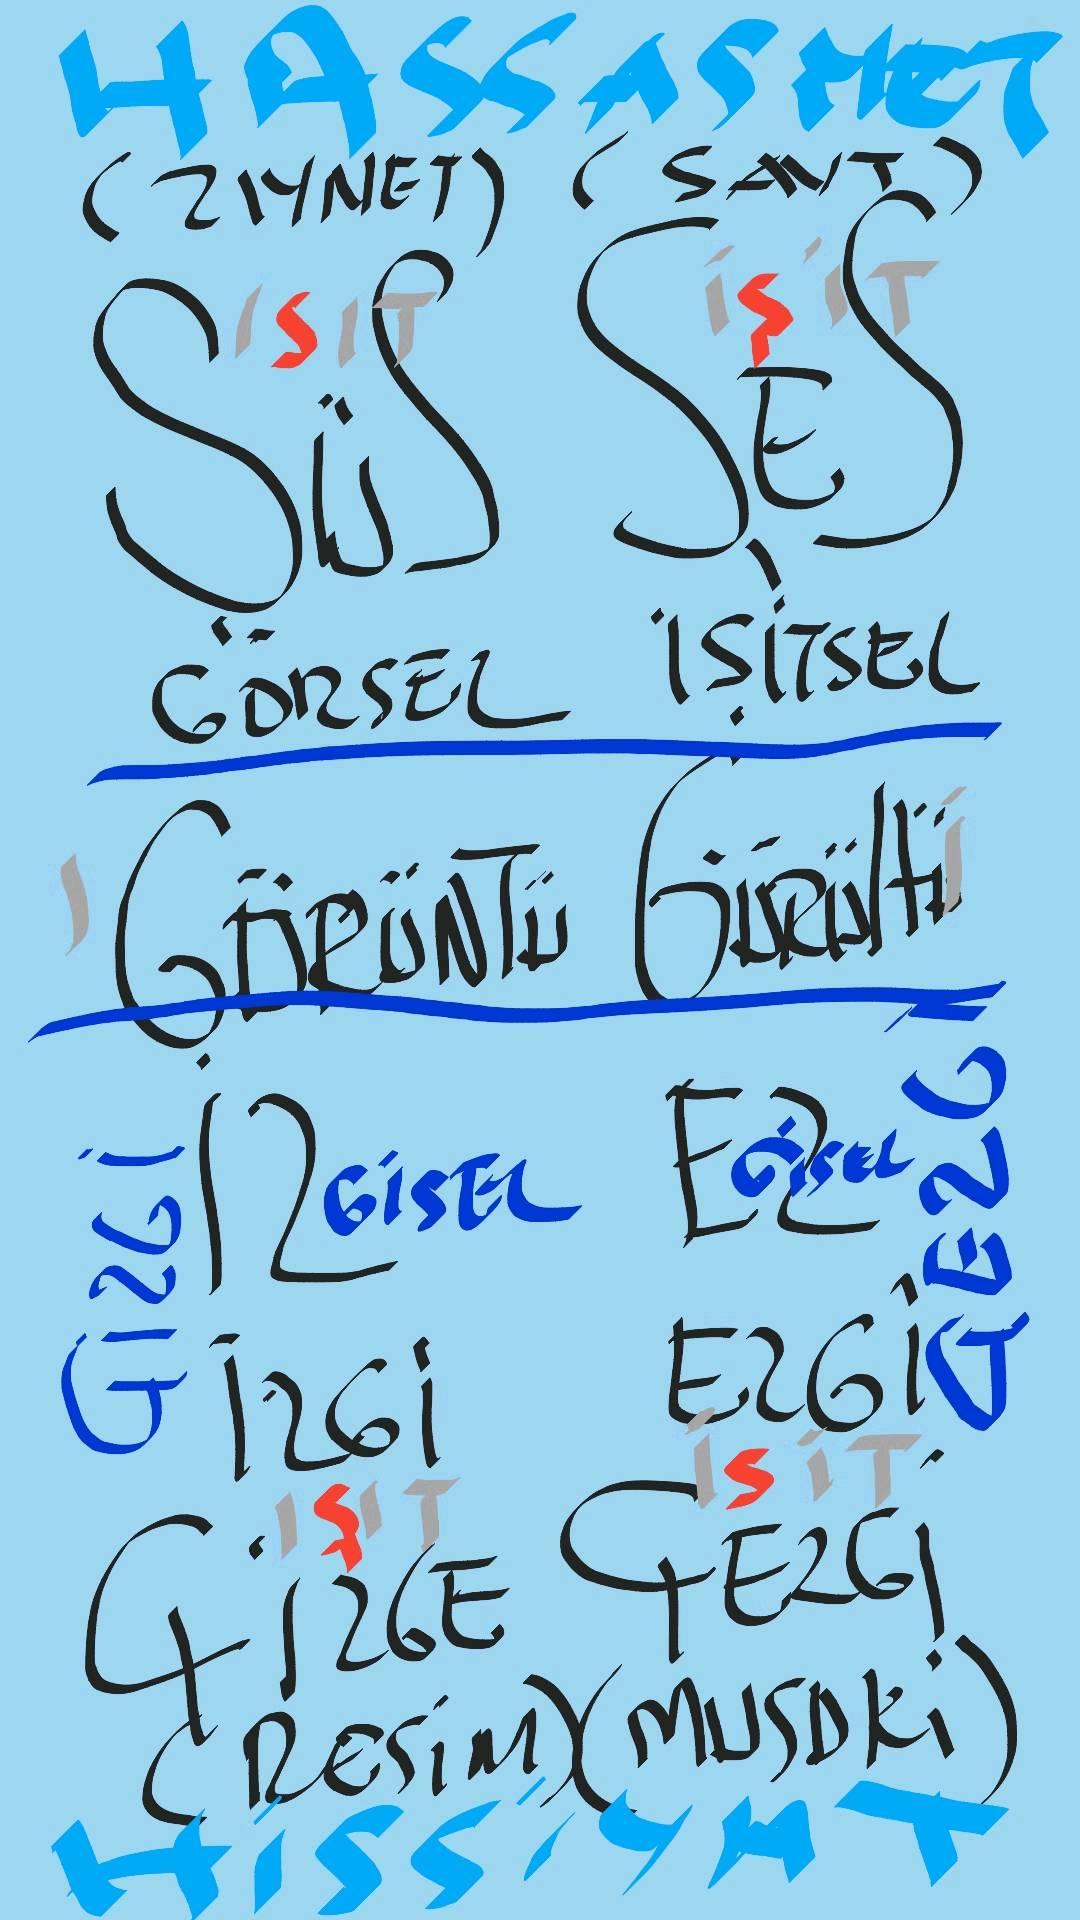 HASSASİYET
(ZİYNET) (SAVT)
ISIT İŞİT
SÜS SES
GÖRSEL İŞİTSEL
GÖRÜNTÜ GÜRÜLTÜ
İZGİSEL EZGİSEL
GİZGİ GEZGİ
İZGİ EZGİ
IŞIT İSİT
ÇİZGE ÇEZGİ
(RESİM) (MUSDKİ)
HİSSİYAT